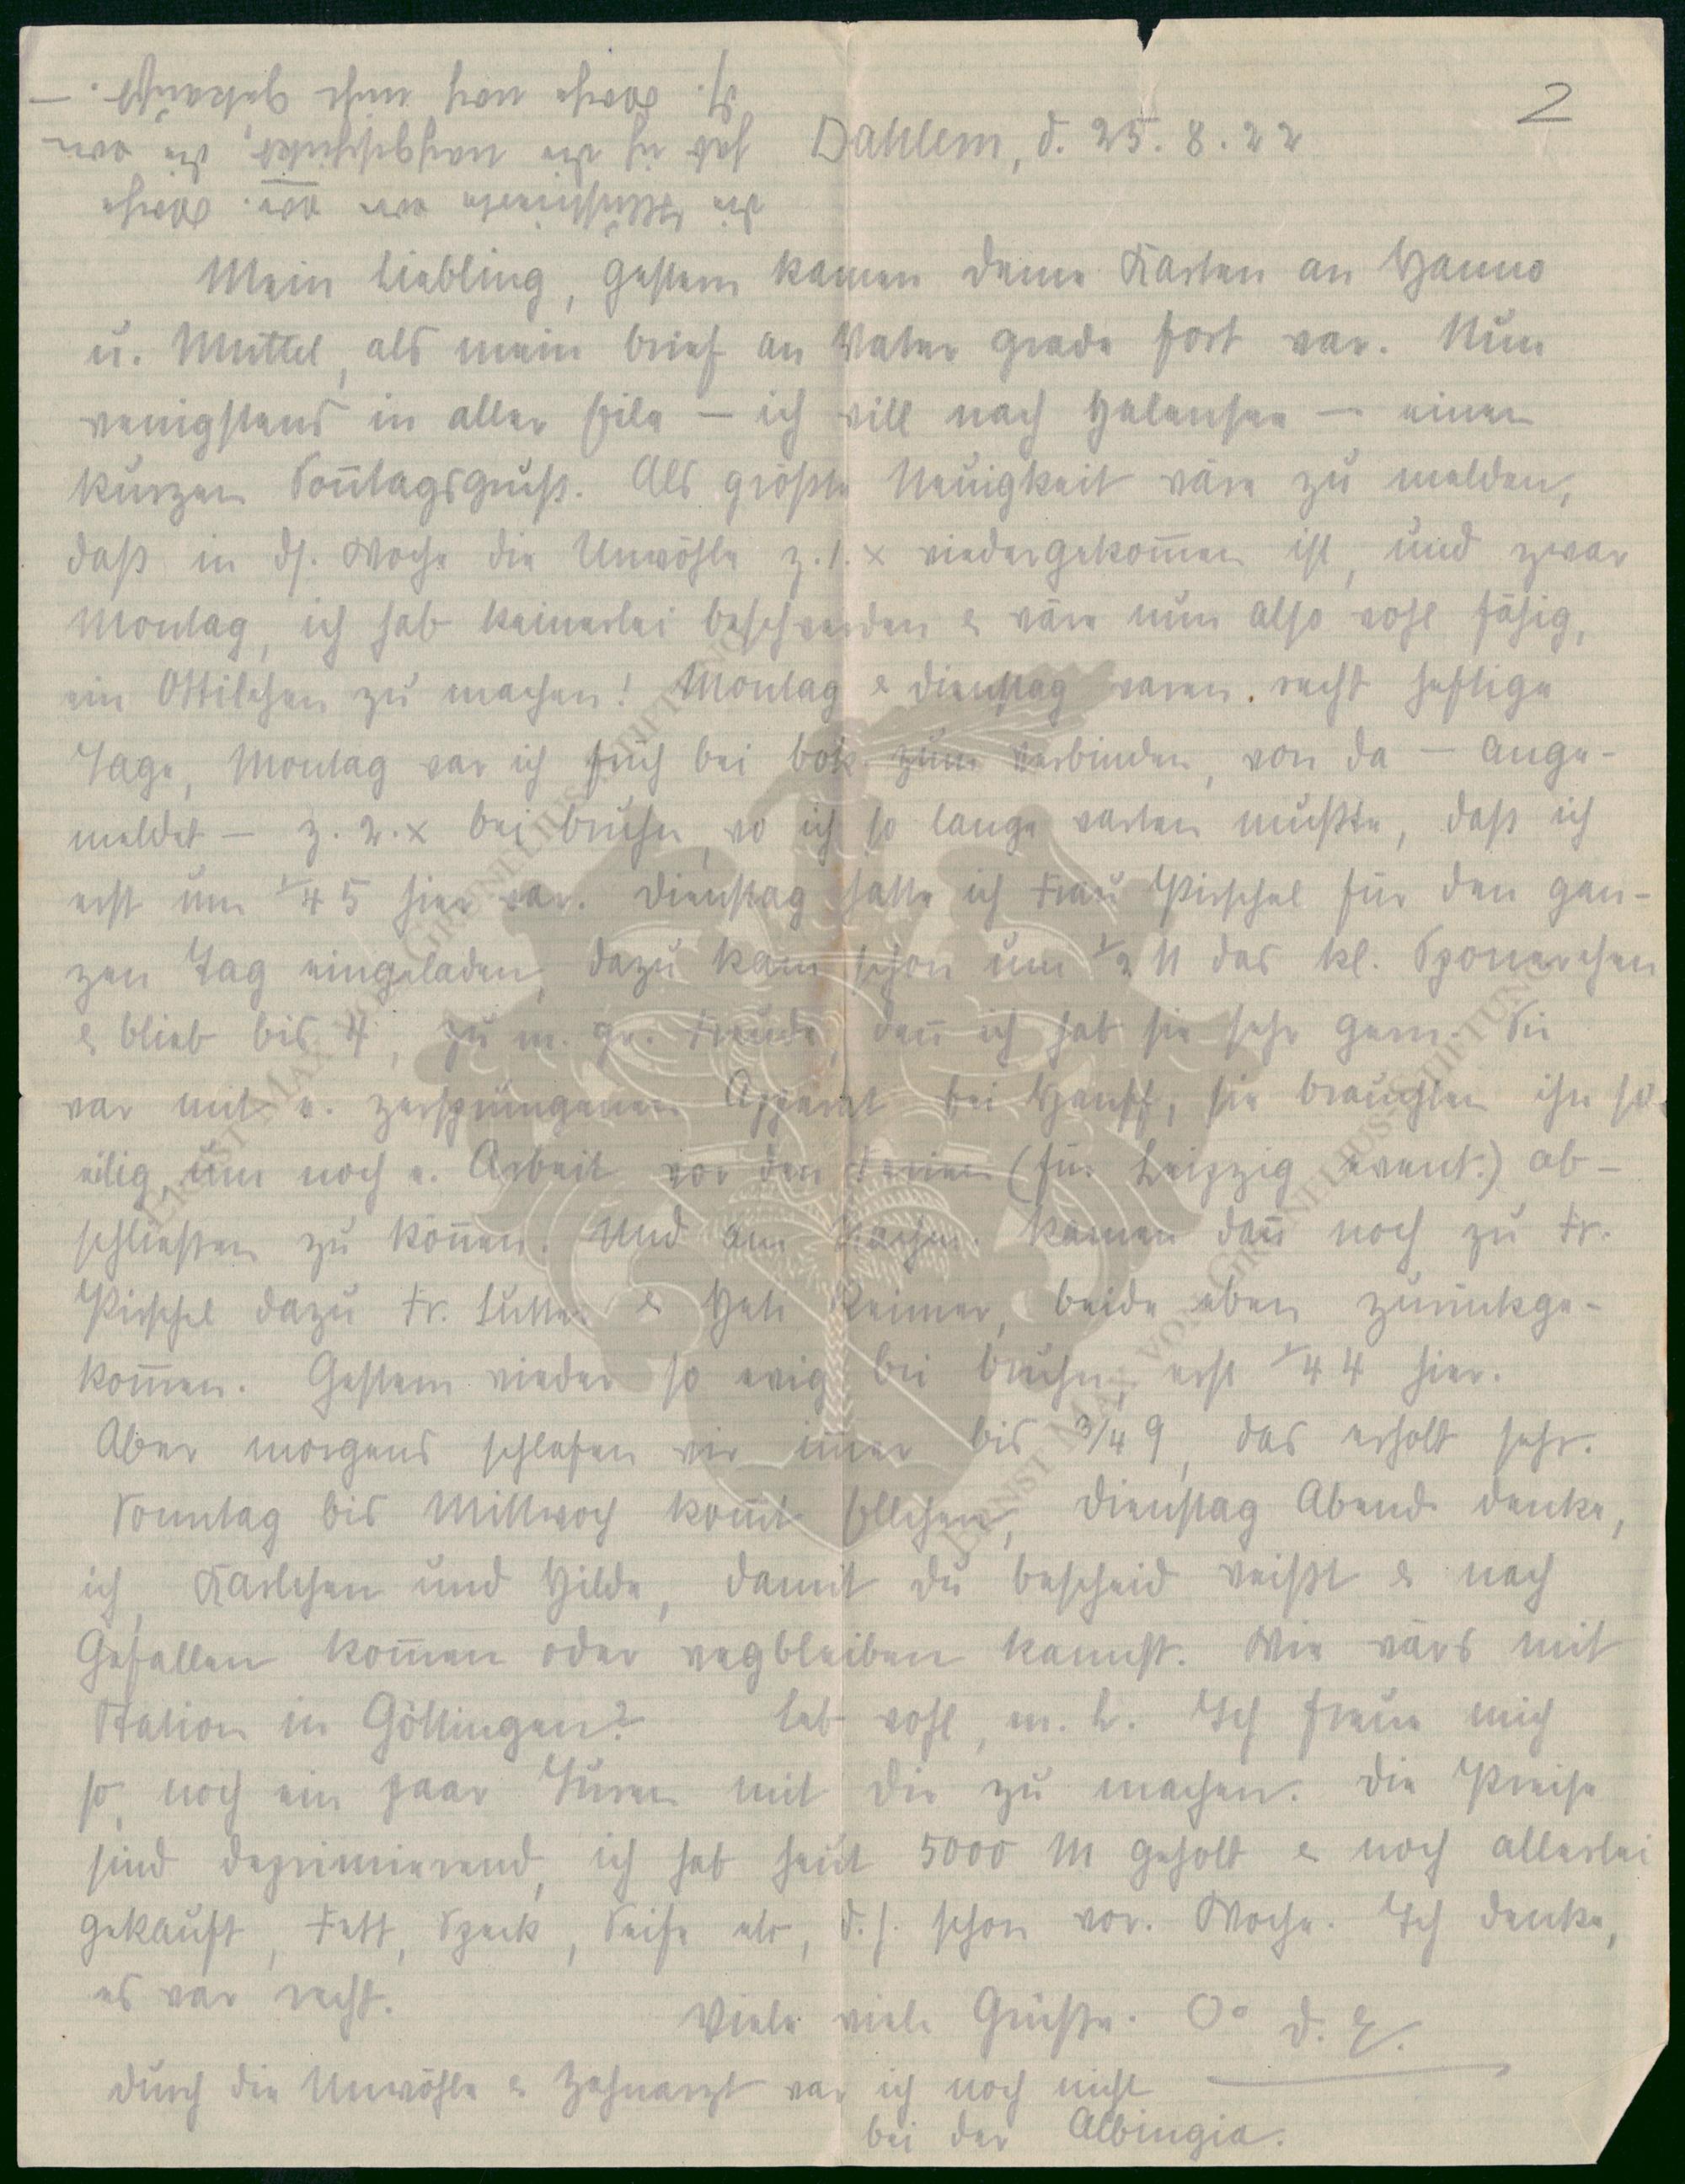 2
Dahlem, d. 25. 8. 22
Mein Liebling, gestern kamen deine Karten an Hanno
u. Muttel, als mein brief an Vater grade fort war. Nun
wenigstens in aller Eile — ich will nach Halensee — einen
kurzen Soñtagsgruß. Als größte Neuigkeit wäre zu melden,
daß in ds. Woche die Unwöhle z. 1. x wiedergekom̄en ist, und zwar
Montag, ich hab keinerlei beschwerden & wäre nun also wohl fähig,
ein Ottilchen zu machen! Montag & dienstag waren recht heftige
Tage, Montag war ich früh bei bok zum verbinden, von da — ange-
meldet — z. 2. x bei bruhn, wo ich so lange warten mußte, daß ich
erst um 1/4 5 hier war. dienstag hatte ich Frau Pirschel für den gan-
zen Tag eingeladen, dazu kam schon um 1/2 11 das kl. Sponerchen
& blieb bis 4, zu m. gr. Freude, deñ ich hab sie sehr gern. Sie
war mit e. zersprungenen Apparat bei Hanff, sie brauchten ihn so
eilig um noch e. Arbeit vor den Ferien (für Leipzig event.) ab-
schließen zu köñen. Und am Nachm. kamen dañ noch zu Fr.
Pirschel dazu Fr. Luther & Heti Reimer, beide eben zurückge-
kom̄en. Gestern wieder so ewig bei bruhn, erst 1/4 4 hier.
Aber morgens schlafen wir im̄er bis 3/4 9, das erholt sehr.
Sonntag bis Mittwoch kom̄t Ellchen, dienstag Abend denke,
ich, Karlchen und Hilde, damit du bescheid weißt & nach
Gefallen kom̄en oder wegbleiben kannst. Wie wärs mit
Station in Göttingen? Leb wohl, m. L. Ich freue mich
so, noch ein paar Turen mit dir zu machen. die Preise
sind deprimierend, ich hab heut 5000 M geholt & noch allerlei
gekauft, Fett, Speck, Seife etc, d. h. schon vor. Woche. Ich denke,
es war recht.
Viele viele Grüße. O° d. E.
durch die Unwöhle & Zahnarzt war ich noch nicht
bei der Albingia.
die war da. Woche
hab ich die nachgeschickt, die von
ds. Woche noch nicht gekauft. —
ERNST MAX VON GRUNELIUS-STIFTUNG
ERNST MAX VON GRUNELIUS-STIFTUNG